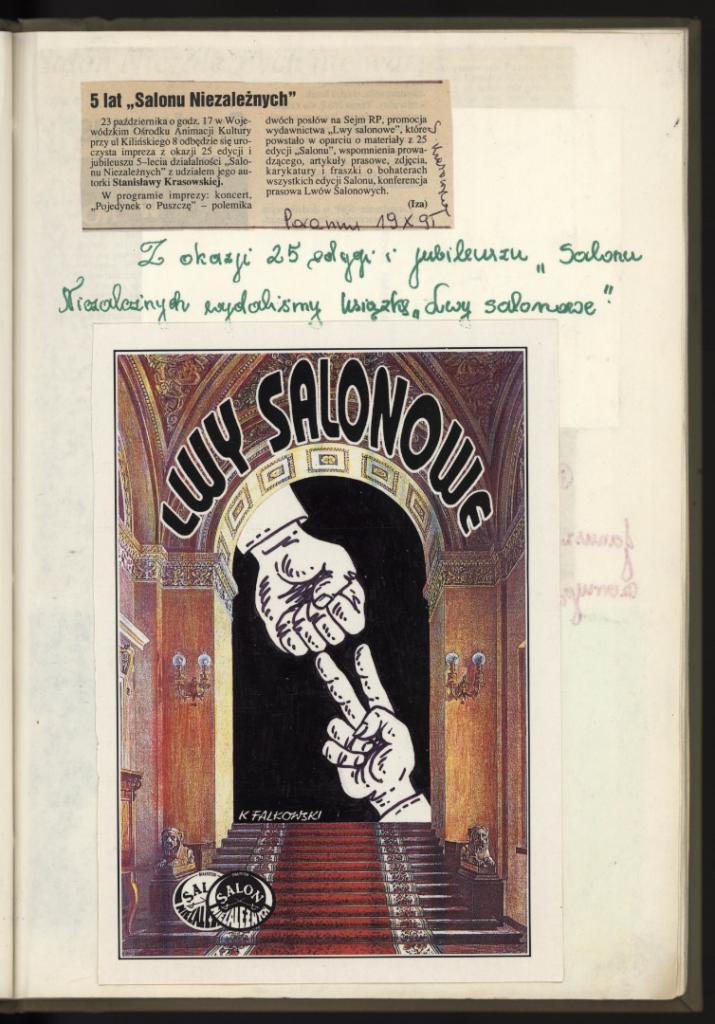 5 lat „Salonu Niezależnych”
23 października o godz. 17 w Woje-
wódzkim Ośrodku Animacji Kultury
przy ul Kilińskiego 8 odbędzie się uro-
czysta impreza z okazji 25 edycji i
jubileuszu 5–lecia działalności „Salo-
nu Niezależnych” z udziałem jego au-
torki Stanisławy Krasowskiej.
W programie imprezy: koncert,
„Pojedynek o Puszczę” – polemika
dwóch posłów na Sejm RP, promocja
wydawnictwa „Lwy salonowe”, które
powstało w oparciu o materiały z 25
edycji „Salonu”, wspomnienia prowa-
dzącego, artykuły prasowe, zdjęcia,
karykatury i fraszki o bohaterach
wszystkich edycji Salonu, konferencja
prasowa Lwów Salonowych.
(Iza)
Poranny 19 X 95
Z okazji 25 edycji i jubileuszu „Salonu
Niezależnych wydaliśmy książkę „Lwy salonowe”
LWY SALONOWE
K FALKOWSKI
SALON
NIEZALEŻNYCH